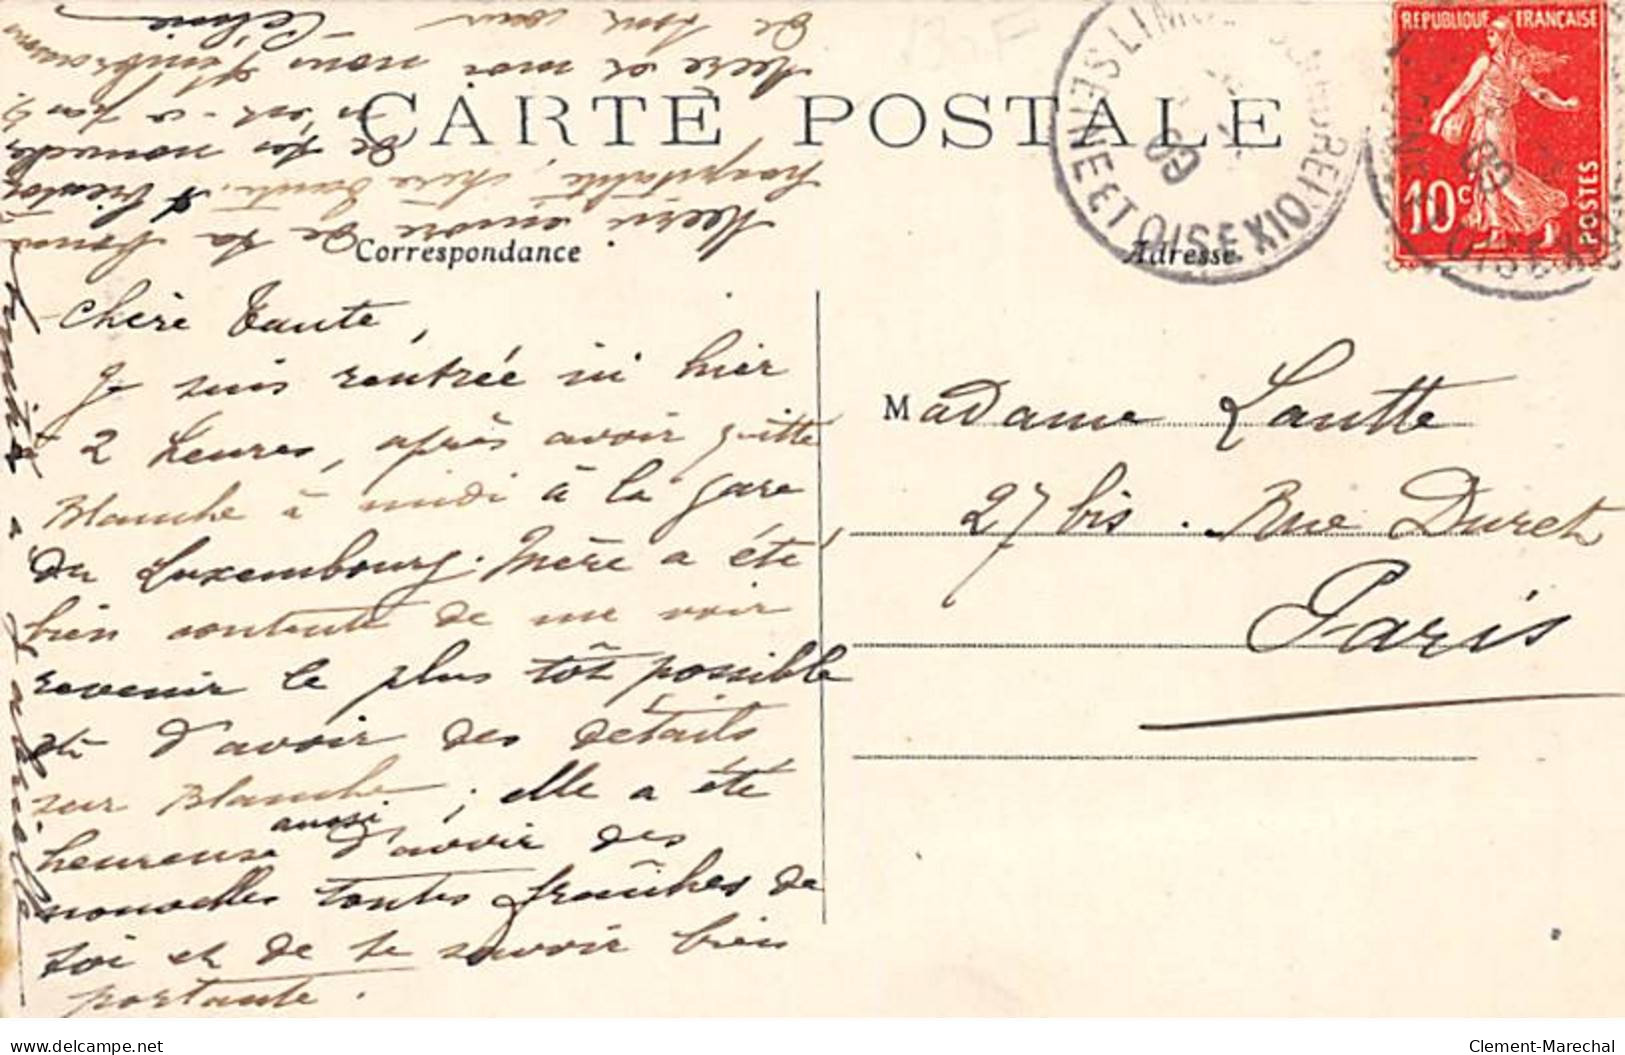 CARTE POSTALE
Correspondance
Adresse
RÉPUBLIQUE FRANÇAISE
10c
POSTES
LIM
SEINE ET OISE
09
Chère Tante,
Je suis rentrée ici hier
à 2 heures, après avoir quitté
Blanche à midi à la gare
du Luxembourg. Mère a été
bien contente de me voir
revenir le plus tôt possible
et d'avoir des détails
sur Blanche ; elle a été
heureuse aussi d'avoir des
nouvelles toutes fraîches de
toi et de te savoir bien
portante.
Merci encore de ta bonne
hospitalité, chère tante. A bientôt
de tes nouvelles,
n'est-ce pas ?
Mère et moi nous t'embrassons
de tout cœur
Céline
Madame Lautte
27 bis. Rue Duret
Paris
www.delcampe.net
Clement-Marechal